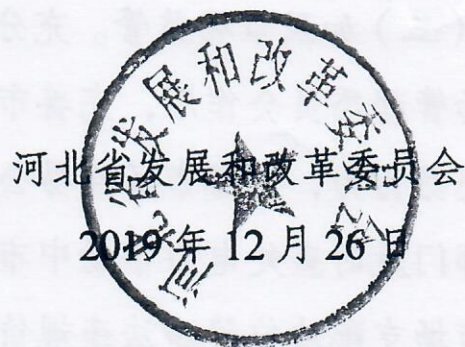 河北省发展和改革委员会
河北省发展和改革委员会
2019年12月26日